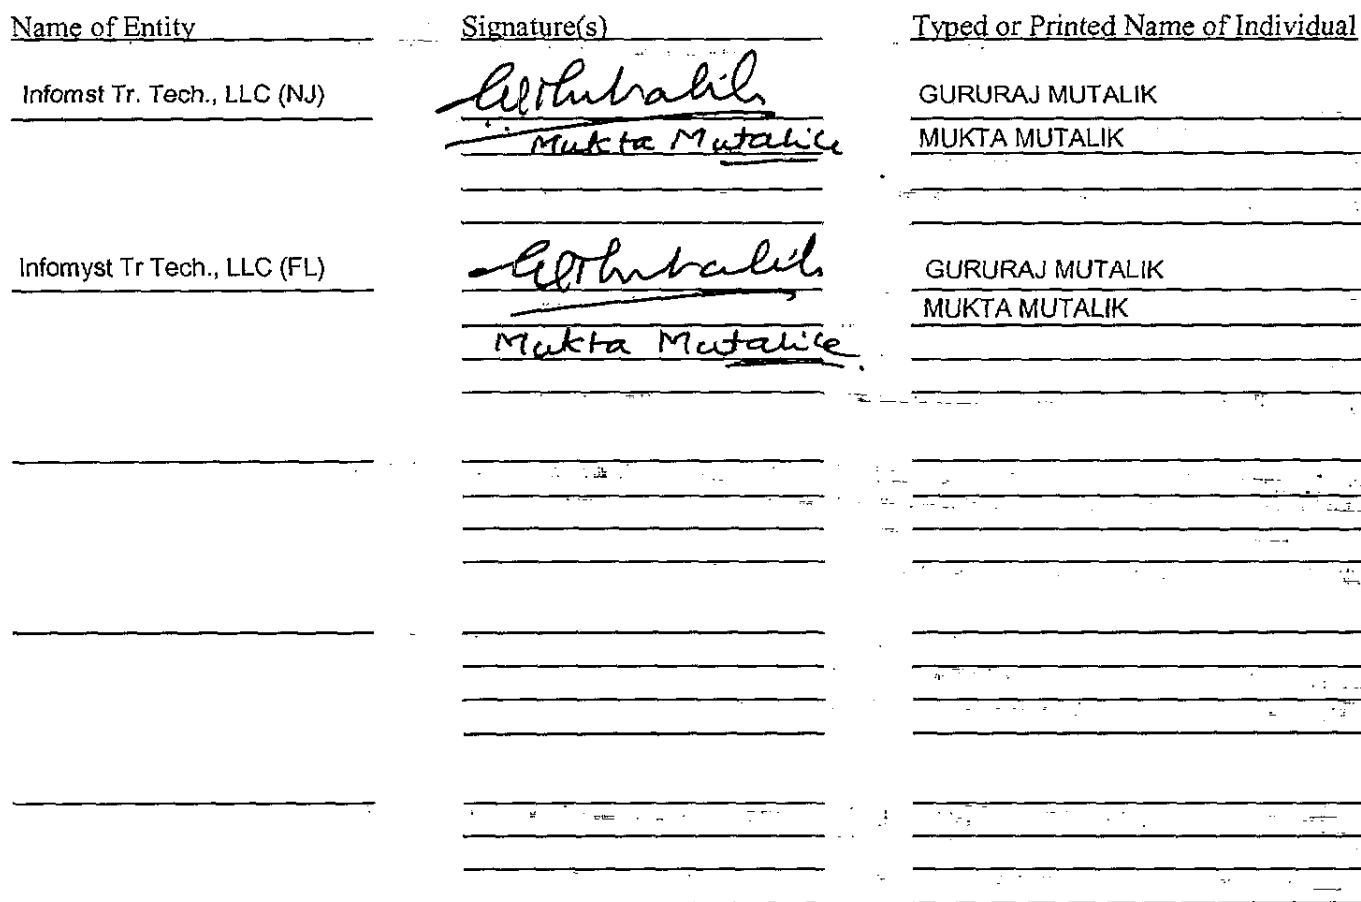 Name of Entity Signature(s) Typed or Printed Name of Individual
Infomst Tr. Tech., LLC (NJ) GURURAJ MUTALIK
Mukta Mutalik MUKTA MUTALIK
Infomyst Tr Tech., LLC (FL) GURURAJ MUTALIK
MUKTA MUTALIK
Mukta Mutalik